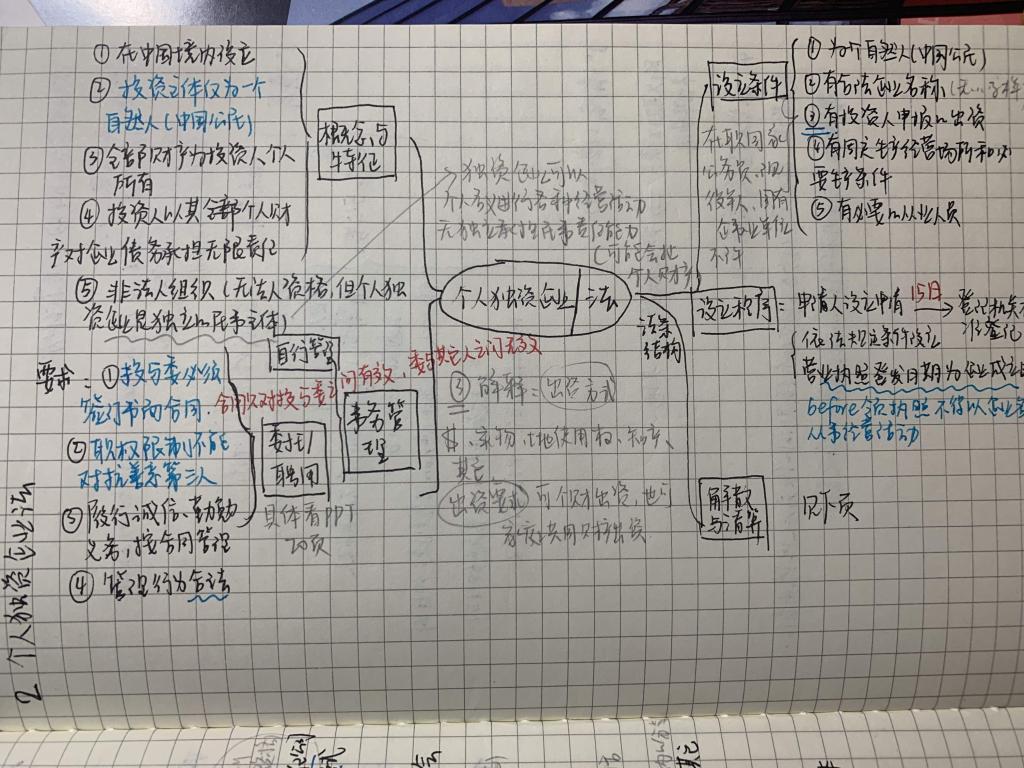 2. 个人独资企业法
个人独资企业法
法条
结构
概念与
特征
① 在中国境内设立
② 投资主体仅为一个
自然人(中国公民)
③ 全部财产为投资人个人
所有
④ 投资人以其全部个人财
产对企业债务承担无限责任
⑤ 非法人组织(无法人资格,但个人独
资企业是独立的民事主体)
独资企业可以
个人名义进行各种经营活动
无独立承担民事责任能力
(可能会牵
个人财产)
设立条件
① 为个自然人(中国公民)
② 有合法企业名称
③ 有投资人申报的出资
④ 有固定生产经营场所和必
要生产条件
⑤ 有必要的从业人员
在职国家
公务员、现
役军人、国有
企事业单位
不许
设立程序
申请人设立申请 15日 → 登记机关
准登记
依法规定条件设立
营业执照签发日期为企业成立日
before领执照不得以企业名
从事经营活动
③ 解释:出资方式
$、实物、土地使用权、知产、
其它
出资要求 可个财出资,也可
家庭共用财产出资
解散
与清算
见下页
事务管
理
自行管理
委托/
聘用
具体看PPT
20页
合同只对投与委之间有效,委与其它人之间无效
要求:①投与委必须
签订书面合同.
② 职权限制不能
对抗善意第三人
③ 履行诚信、勤勉
义务,按合同管理
④ 管理行为合法